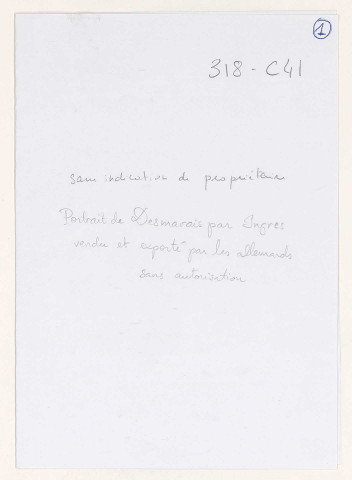 1
318 - C41
sans indication de propriétaire
Portrait de Desmarais par Ingres
vendu et exporté par les allemands
sans autorisation